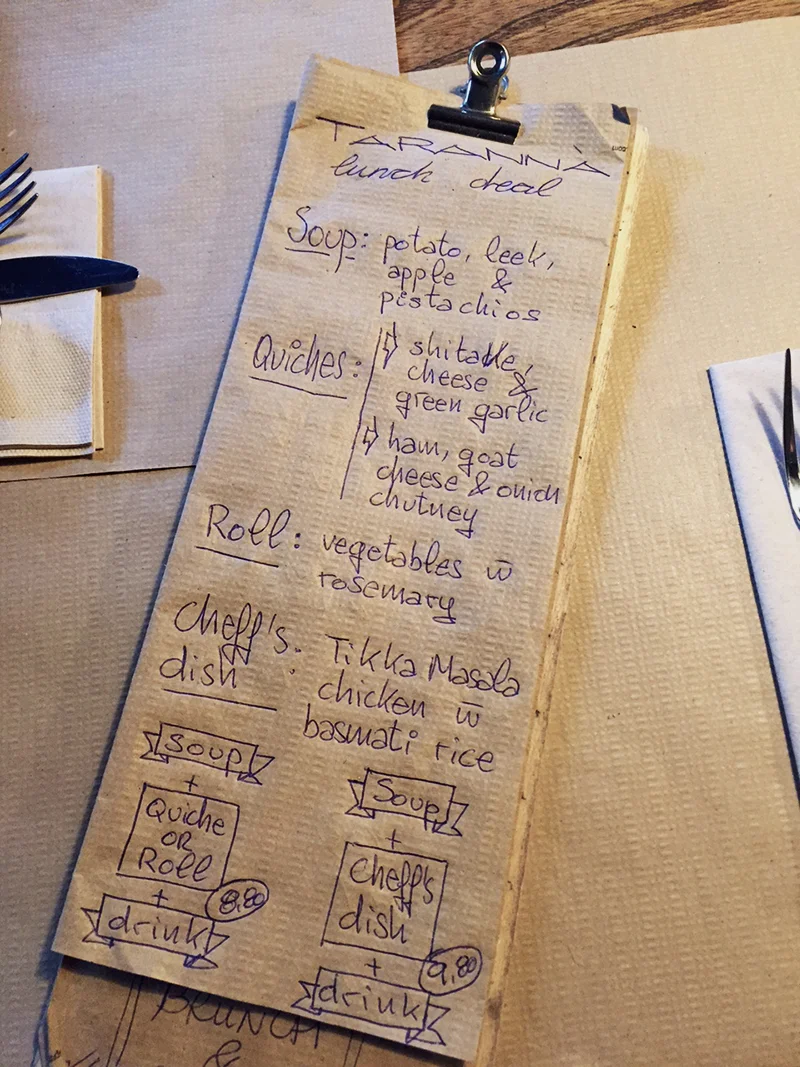 TARANNÀ
lunch deal
Soup: potato, leek,
apple &
pistachios
Quiches: shitake,
cheese &
green garlic
ham, goat
cheese & onion
chutney
Roll: vegetables w̅
rosemary
Cheff's dish: Tikka Masala
chicken w̅
basmati rice
Soup
+
Quiche
OR
Roll
8,80
+
drink
Soup
+
Cheff's
dish
9,80
+
drink
BRUNCH
&